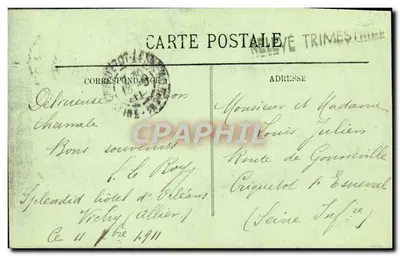 CARTE POSTALE
RELEVÉ TRIMESTRIEL
CORRESPONDANCE
ADRESSE
Délicieuse
charmante
Bons souvenirs
f. Le Roy
Splendid hôtel d'Orléans
Vichy (Allier)
Ce 11 7bre 1911
Monsieur et Madame
Louis Julien
Route de Gonneville
Criquetot l'Esneval
(Seine Infre)
CPARPHIL